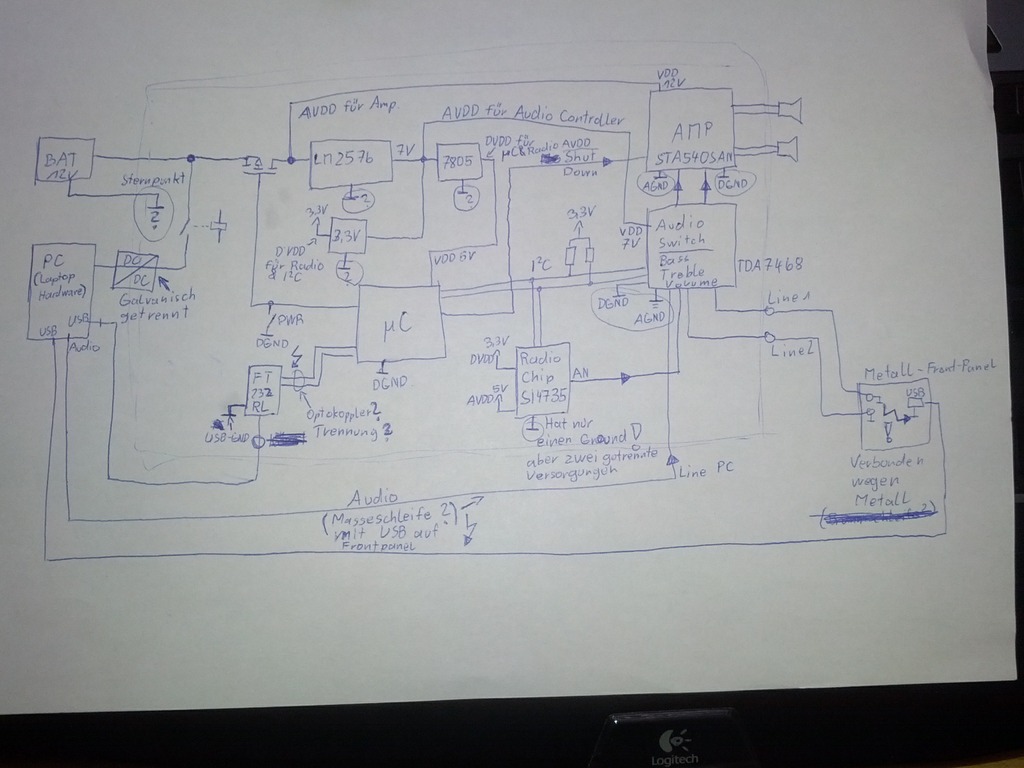 VDD
12V
AVDD für Amp.
AVDD für Audio Controller
AMP
STA540SAN
BAT
12V
LM2576
7V
7805
DVDD für
µC & Radio AVDD
Shut
Down
Sternpunkt
?
?
?
AGND
DGND
3,3V
3,3V
DVDD
für Radio
& I²C
?
3,3V
VDD 5V
I²C
VDD
7V
Audio
Switch
Bass
Treble
Volume
TDA7468
PC
(Laptop
Hardware)
USB
USB
Audio
DC
DC
Galvanisch
getrennt
DGND
AGND
Line 1
Line 2
PWR
DGND
µC
DGND
3,3V
DVDD
5V
AVDD
Radio
Chip
SI4735
AN
FT
232
RL
USB-GND
Optokoppler?
Trennung?
Hat nur
einen Ground!
aber zwei getrennte
Versorgungen
Metall-Front-Panel
USB
!
Verbunden
wegen
Metall
Line PC
Audio
(Masseschleife?)
mit USB auf
Frontpanel
Logitech